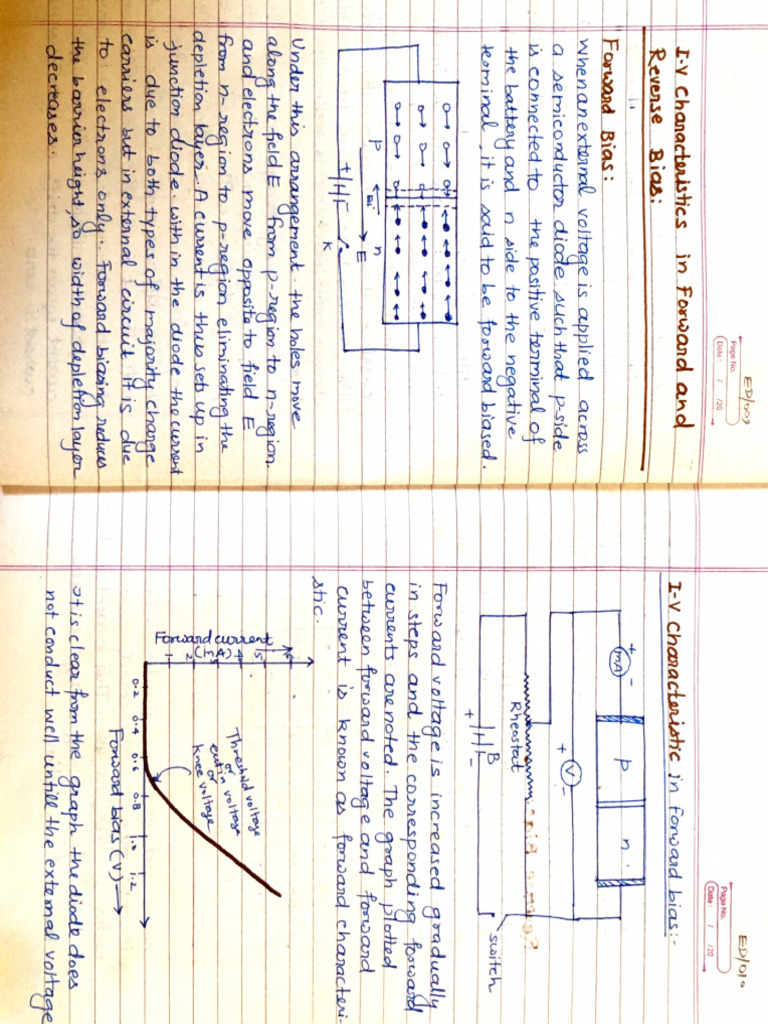 ED/009
Page No.
Date: / /20
I-V Characteristics in Forward and
Reverse Bias:
Forward Bias:
When an external voltage is applied across
a semiconductor diode such that p-side
is connected to the positive terminal of
the battery and n side to the negative
terminal, it is said to be forward biased.
p n
Ei
E
+ -
K
Under this arrangement the holes move
along the field E from p-region to n-region
and electrons move opposite to field E
from n-region to p-region eliminating the
depletion layer. A current is thus sets up in
junction diode. with in the diode the current
is due to both types of majority charge
carriers but in external circuit it is due
to electrons only. Forward biasing reduces
the barrier height, so width of depletion layer
decreases.
ED/010
Page No.
Date: / /20
I-V Characteristic in forward bias:-
+ mA -
p n
+ V -
Rheostat
B
+ -
switch
Forward voltage is increased gradually
in steps and the corresponding forward
currents are noted. The graph plotted
between forward voltage and forward
current is known as forward characteri-
stic.
Forward current
(mA)
1 2 3 4 5 6
Threshold voltage
or
cut in voltage
or
knee voltage
0.2 0.4 0.6 0.8 1.0 1.2
Forward bias (V)
It is clear from the graph the diode does
not conduct well untill the external voltage